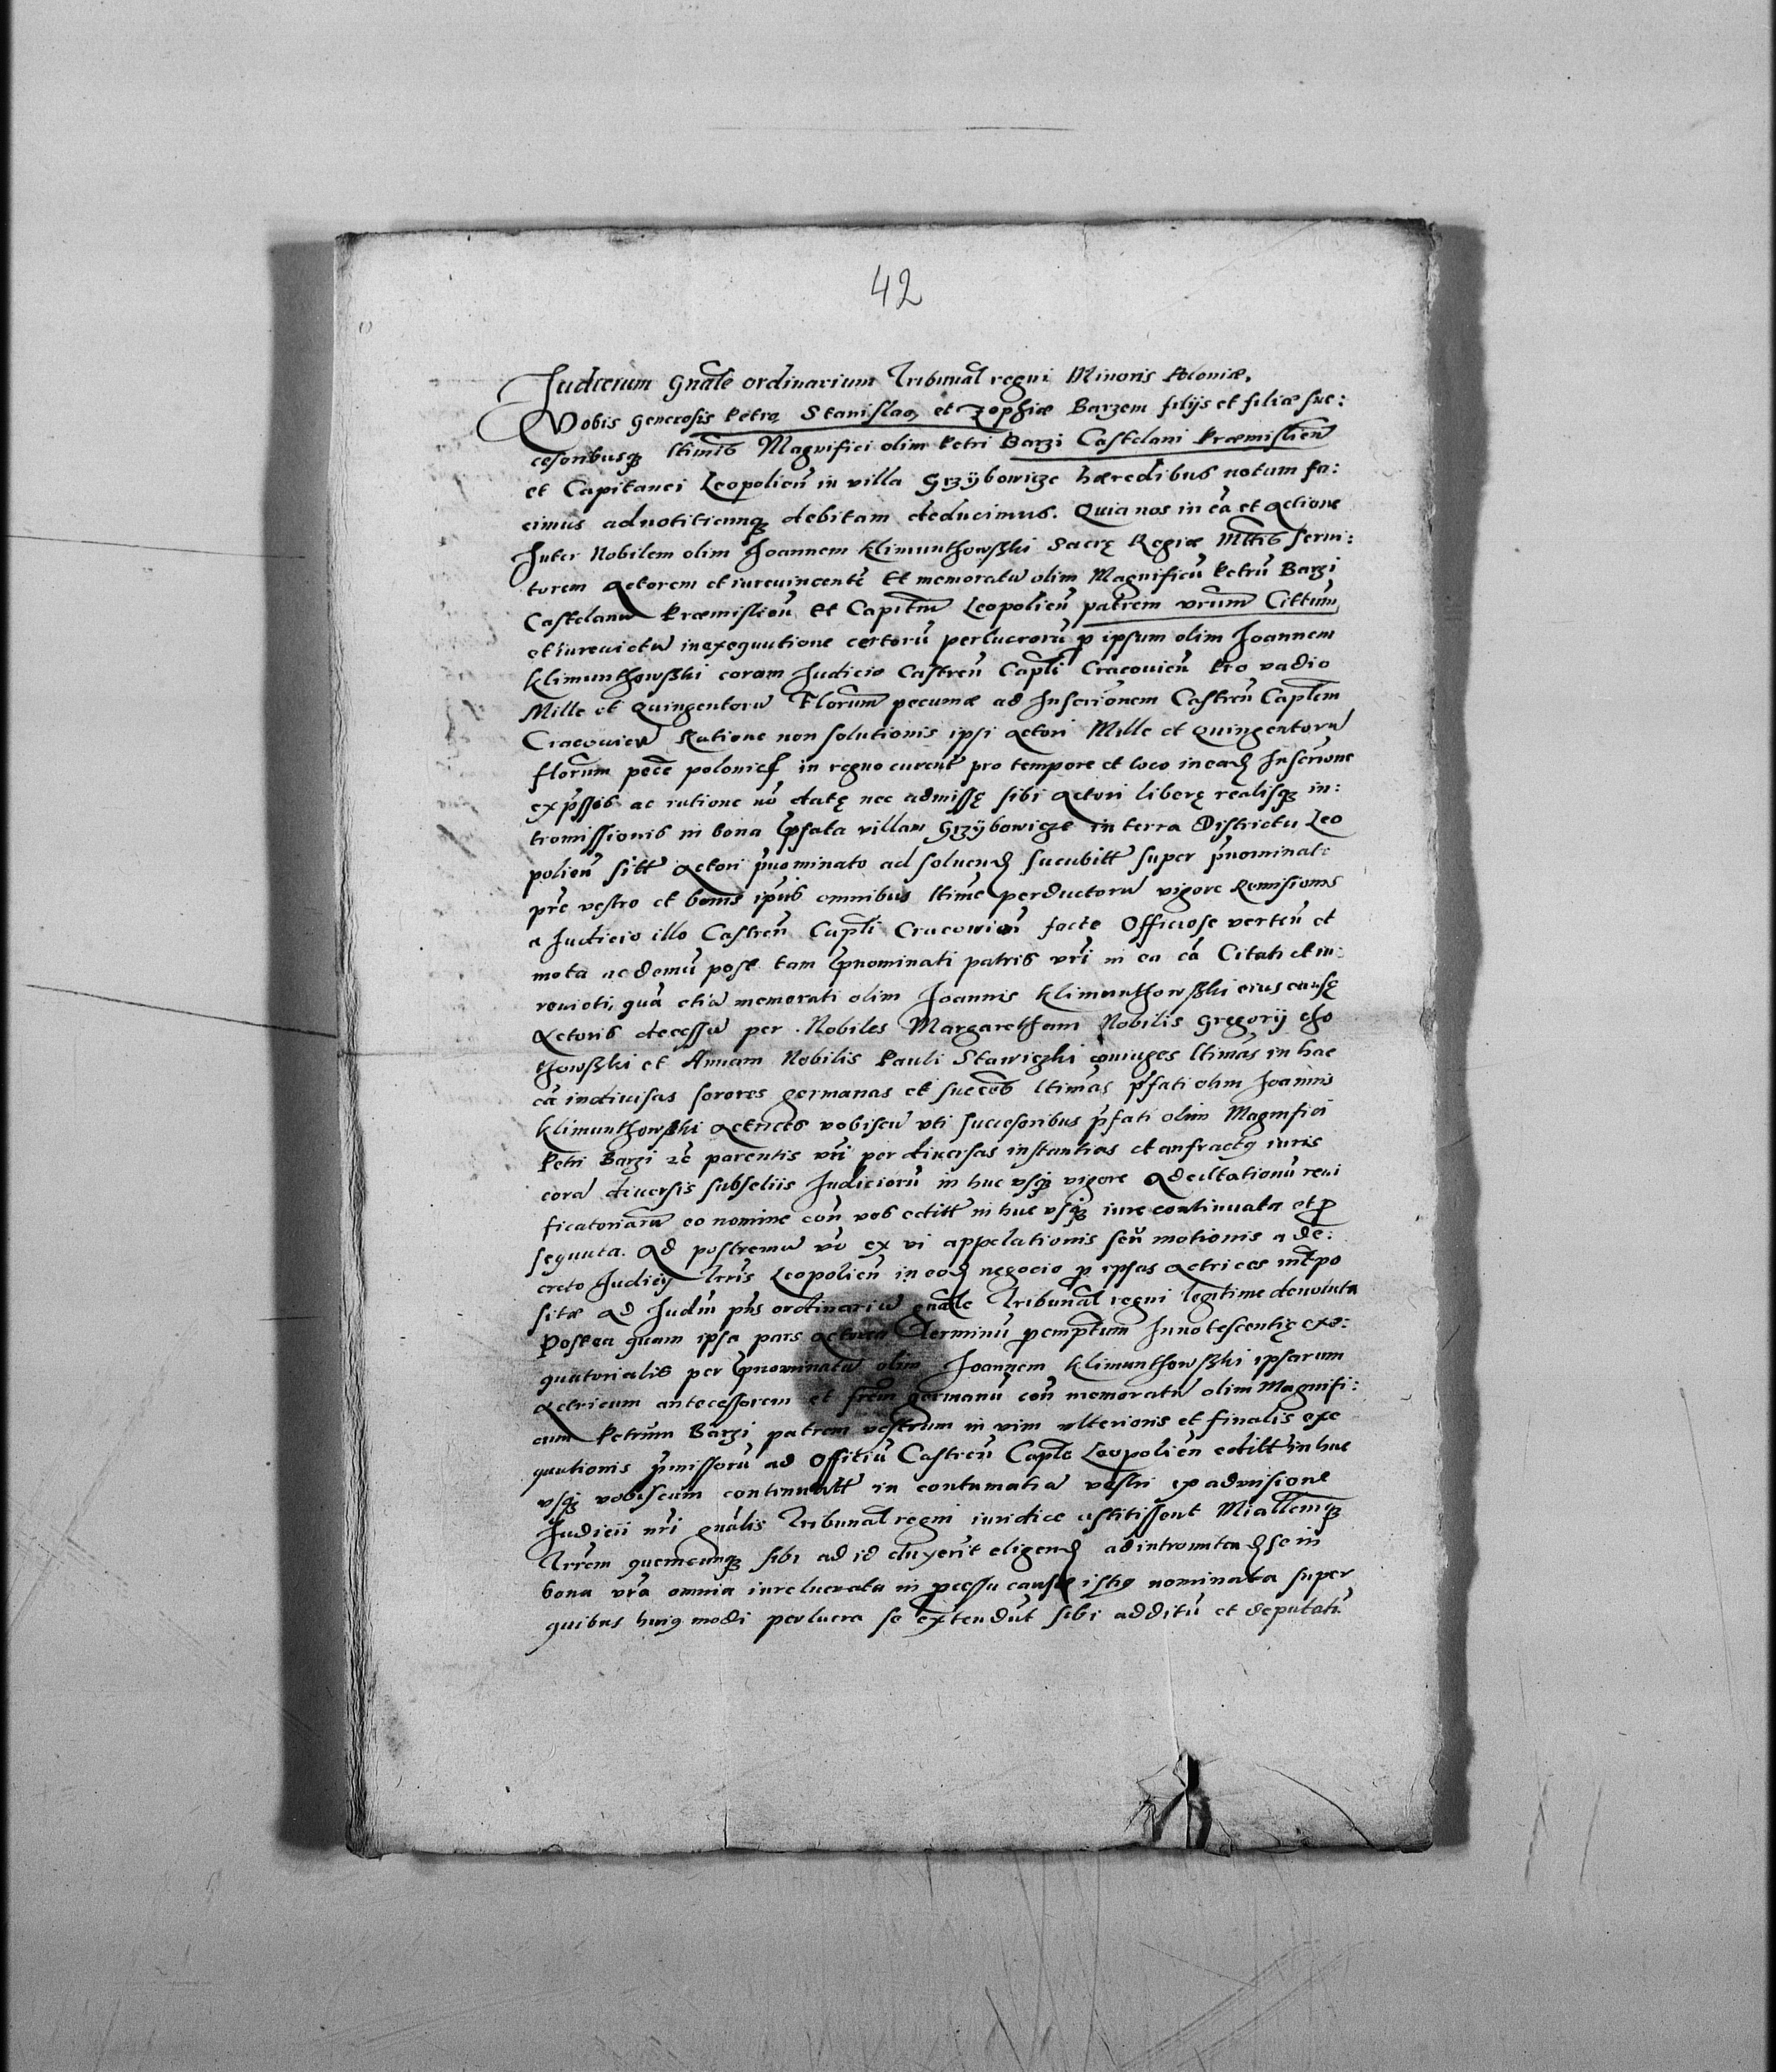 42
Judicium gnale ordinarium Tribunal regni Minoris Poloniæ,
Vobis generosis Petro, Stanislao, et Zophiæ Barzem filijs et filiæ suc:
cesoribusq ltimis Magnifici olim Petri Barzi Castelani Præmislien
et Capitanei Leopolien in villa Grzÿbowicze hæredibus notum fa:
cimus ad notitiamq debitam deducimus. Quia nos in ca et actione
Inter Nobilem olim Joannem Klimunthowski Sacrę Regiæ Mttis servi:
torem Actorem et iurevincente et memoratu olim Magnificu Petru Barzi
Castelanu Præmislien et Capitm Leopolien patrem vrum Cittum
et iurevictu in exequutione certoru perlucroru p ipsum olim Joannem
Klimunthowski coram Judicio Castren Capli Cracovien Pro vadio
Mille et Quingentoru Florum pecuniæ ad Inscriонem Castren Captem
Cracovien Ratione non solutionis ipsi Actori Mille et Quingentoru
florum pece polonical in regno curent pro tempore et loco in ead Inscrione
expssis ac ratione no datę nec admissę sibi Actori liberę realisq in:
tromissionis in bona pfata villam Grzÿbowicze in terra Districtu Leo
polien sitt Actori pnominato ad soluend sucubitt super pnominato
pre vestro et bonis ipius omnibus ltime perductoru vigore Remisionis
a Judicio illo Castren Capli Cracovien facte Officiose verten et
mota ac demu post tam pnominati patris vri in ea ca Citati et iu
revicti, qua etia memorati olim Joannis Klimunthowski eius causę
Actoris decessu per Nobiles Margaretham Nobilis Gregorij Cho
thowski et Annam Nobilis Pauli Stawiczki coniuges ltimas in hac
ca indivisas sorores germanas et succes ltimas pfati olim Joannis
Klimunthowski Actrices vobiscu vti successoribus pfati olim Magnifici
Petri Barzi 2e parentis vri per diversas instantias et anfractus iuris
cora diversis subseliis Judicioru in huc vsq vigore Adcitationu revi
ficatoriaru eo nomine con vos editt in huc vsq iure continuata et p
sequuta. Ad postremu vo ex vi appelationis seu motionis a de:
creto Judicij Trris Leopolien in eod negocio p ipsas Actrices intpo
sitæ ad Judm pns ordinariu gnale Tribunal regni legitime devoluta
Postea quam ipsa pars actorea Terminu pemptum Innotescentię exe:
quutorialis per pnominatu olim Joannem Klimunthowski ipsarum
Actricum antecessorem et frem germanu con memoratu olim Magnifi:
cum Petrum Barzi patrem vestrum in vim vlterioris et finalis exe
quutionis pmissoru ad Officiu Castren Capte Leopolien editt in huc
vsq vobiscum continuatt in contumatia vestri ex admisione
Judicii nri gnalis Tribunal regni iuridice astitissent Miallemq
Trrem quemcunq sibi ad id duxerit eligend ad intromitend se in
bona vra omnia iure lucrata in pcessu causæ istius nominata super
quibus huius modi perlucra se extendut sibi additu et deputatu